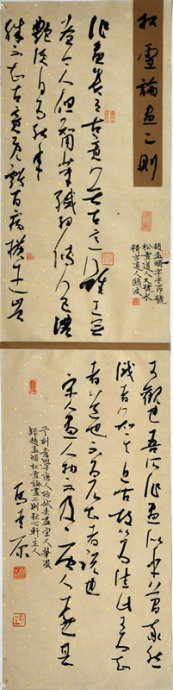 松雪論畫二則
趙孟頫字子昂號
松雪道人又號水
精宮道人鷗波
作畫貴有古意若無古意雖工無
益今人但知用筆纖細傅色濃
艷便自為能手
殊不知古意既虧百病橫生豈
可觀也吾所作畫似乎簡率然
識者知其近古故以為佳此可為知
者道不為不知者說也
宋人畫人物不及唐人遠甚
予刻意學唐人殆欲盡去宋人筆墨
趙孟頫松雪論畫二則